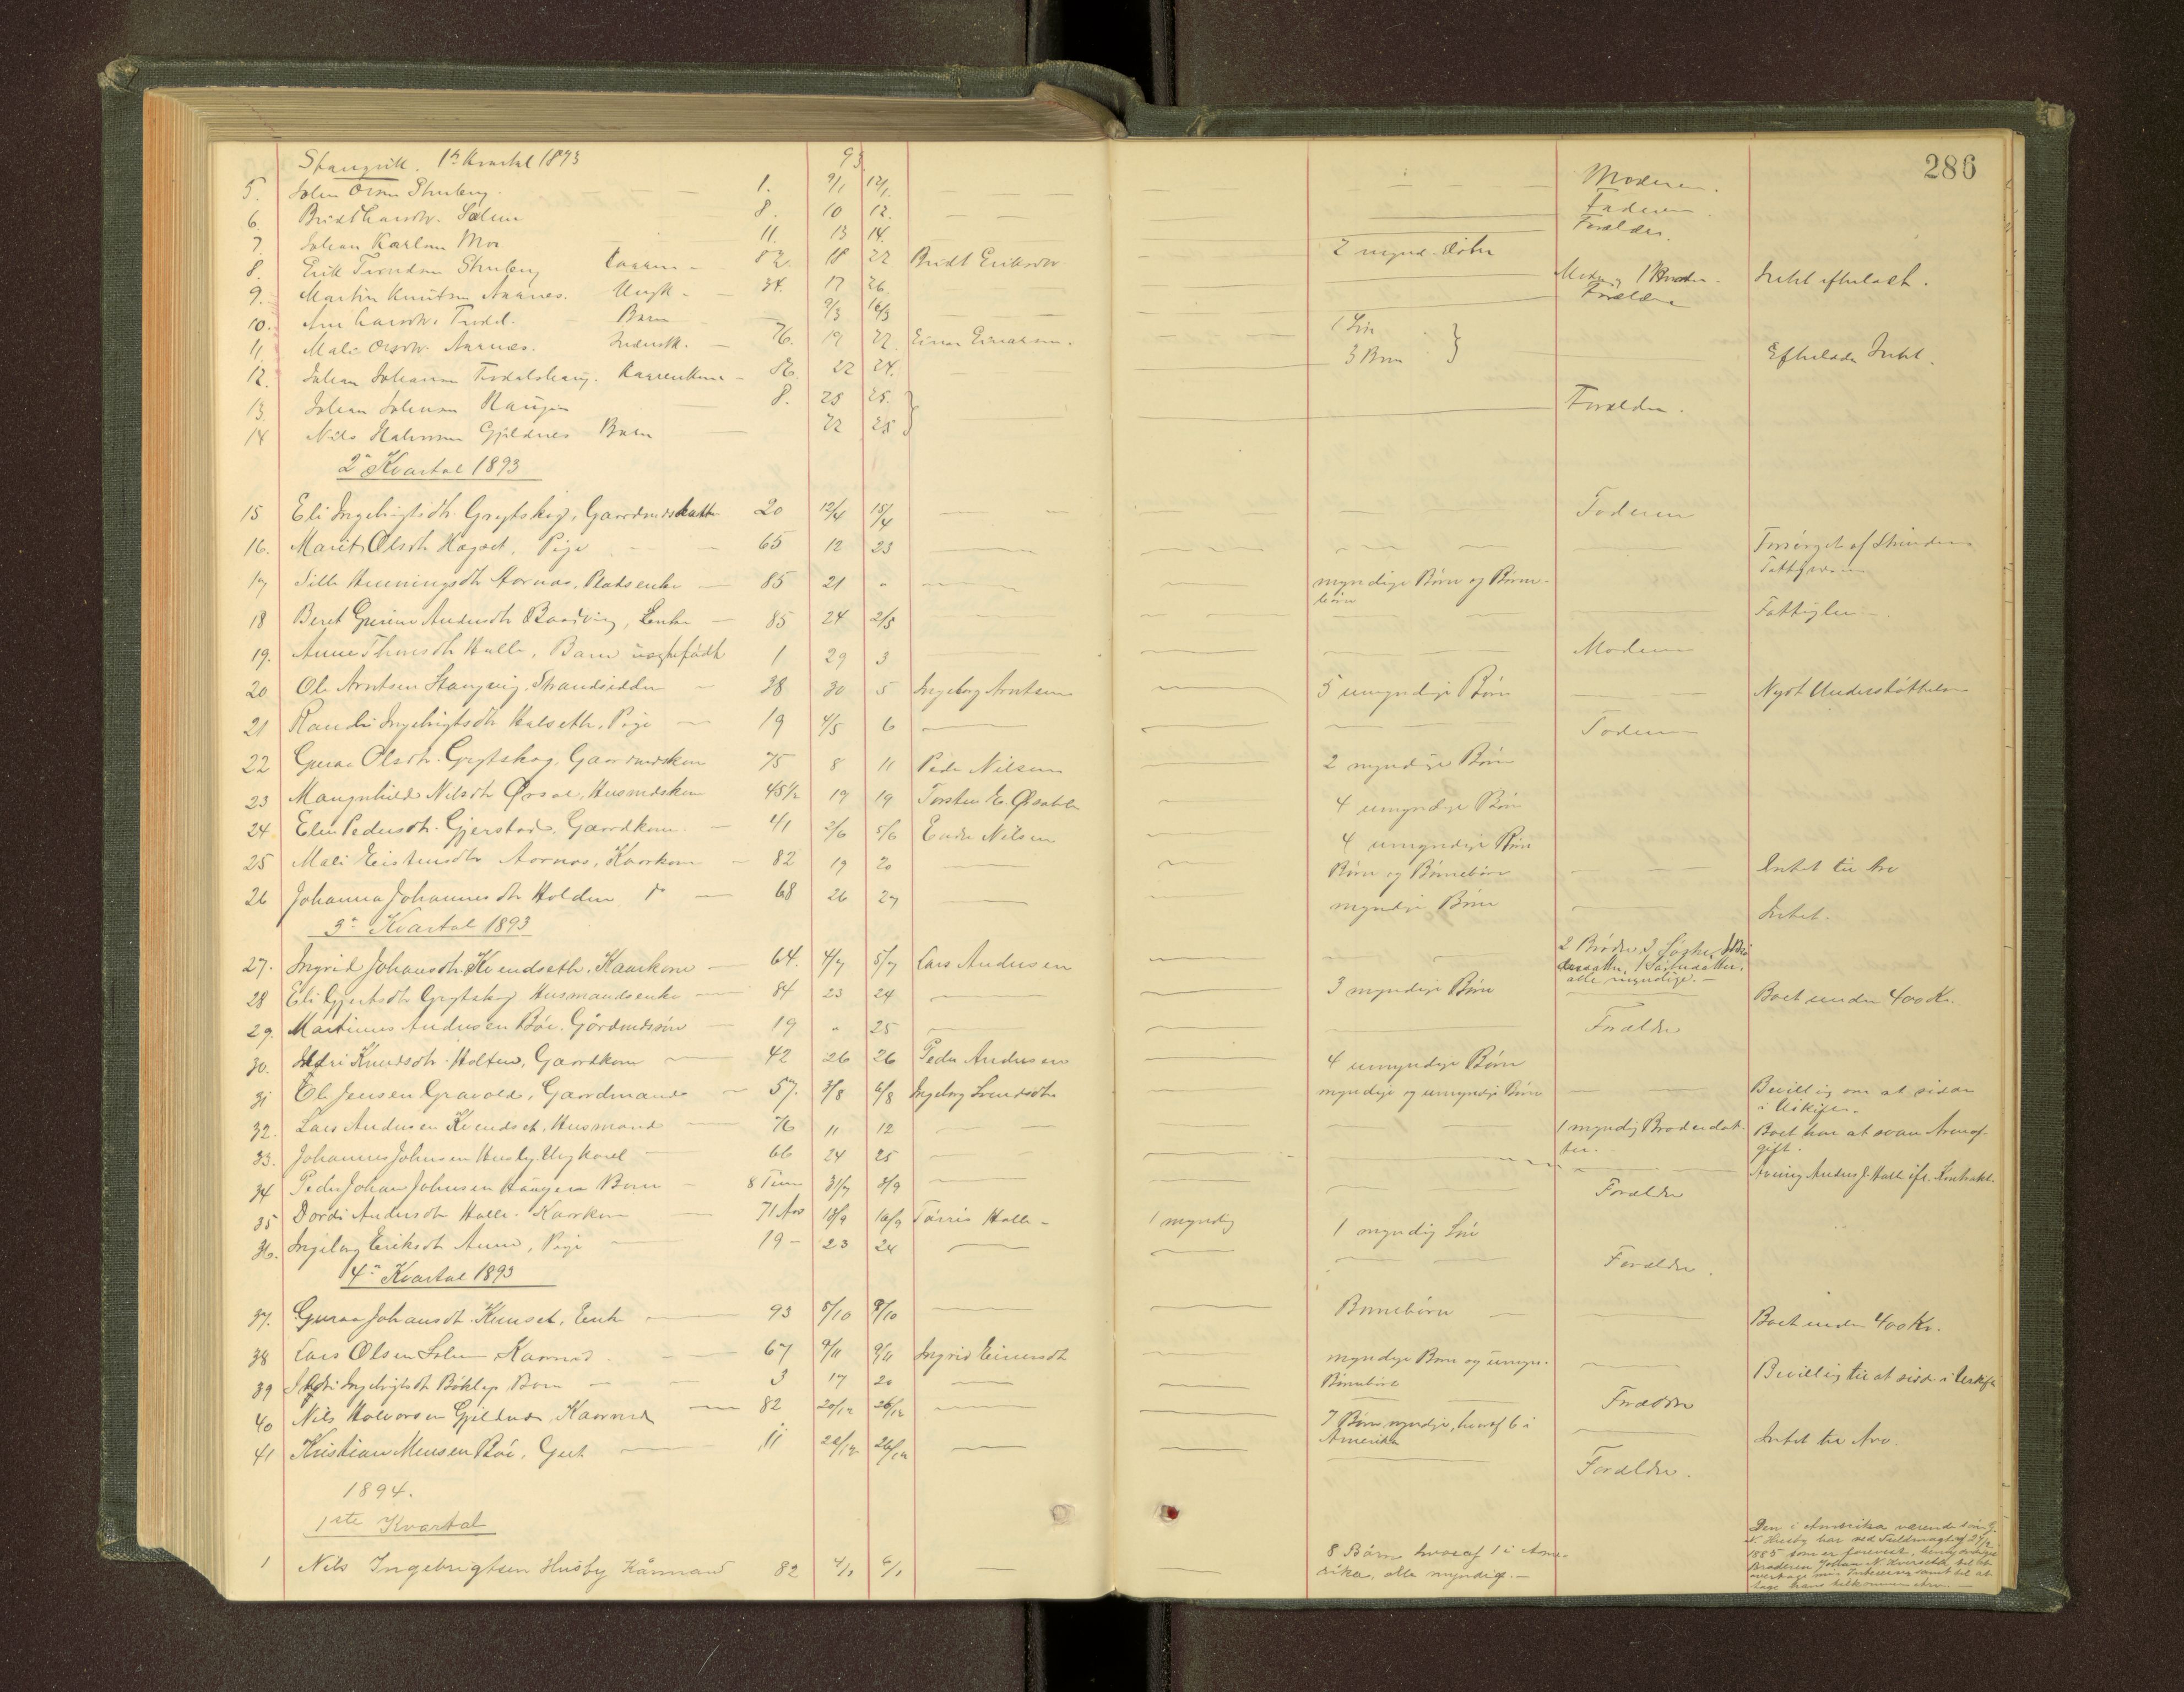 286
Stangvik. 1ste Kvartal 1893 93
5. John Olsen 1. 9/1 12/1 Moderen.
6. Bridt Larsdtr. Solem 8. 10 12. Faderen
7. Johan Karlsen Moe 11. 13 14. Forældre.
8. Erik Trondsen Kaarm. 82. 18 22 Bridt Eriksdtr 2 mynd. Døtre
9. Martin Knutsen Aarnes. Ungk. 34. 17 26. Moder, 1 Broder. Intet efterladt.
10. Ane Larsdtr. Barn 9/3 16/3 Forældre
11. Mali Olsdtr. Aarnes. Inderstk. 76. 19 22. Einar Einarsen. 1 Søn
12. Johan Johansen Kaarenkm. 86. 22 24. 3 Børn Efterlader Intet.
13. Johan Johnsen Haugen 8. 25 25. Forældre.
14 Nils Halvorsen Gjeldnes Barn 22 25
2det Kvartal 1893
15 Eli Ingebrigtsdtr. Grytskog, Gaardmdsdatter 20 12/4 15/4 Faderen
16. Marit Olsdtr Hagset, Pige 65 12 23 Forsørget af
Fattigvæsen
17 Sille Henningsdtr Aarnæs, Pladsenke 85 21 " myndige Børn og Børne-
børn
18 Beret Andersdtr Baardvig, Enke 85 24 2/5 Fattiglem.
19. Anne Halle, Barn uægtefødt 1 29 3 Moderen
20 Ole Arntsen Stangvig, Strandsidder 38 30 5 Ingeborg Arntsen 5 umyndige Børn Nydt Understøttelse
21 Randi Ingebrigtsdtr Halseth, Pige 19 4/5 6 Faderen
22 Guraa Olsdtr. Grytskog, Gaardmdskone 75 8 11 Peder Nilsen 2 myndige Børn
23 Magnhild Nilsdtr Ørsal, Husmdskone 45½ 19 19 Torsten E. Ørsahl 4 umyndige Børn
24 Elen Pedersdtr. Gjerstad, Gaardkone 41 2/6 5/6 Endre Nilsen 4 umyndige Børn
25 Mali Eistensdtr Aarnæs, Kaarkone 82 19 20 Børn og Børnebørn Intet til Arv
26 Johanna Johannesdtr Holden do 68 26 27 myndige Børn Intet.
3die Kvartal 1893
27. Ingrid Johansdtr. Kvendseth, Kaarkone 64. 4/7 5/7 Lars Andersen 2 Brødre, 3 Søstre, 1 Bro-
derdatter, 1 Søsterdatter,
alle myndige.
28 Eli Gjertsdtr Grytskog Husmandsenke 84 23 24 3 myndige Børn Boet under 400 Kr.
29. Martinus Andersen Bøe. Gårdmdssøn 19 " 25 Forældre
30. Knudsdtr. Holten, Gaardkone 42 26 26 Peder Andersen 4 umyndige Børn
31 Ole Jensen Gravold, Gaardmand 57. 3/8 6/8 Ingeborg Svendsdtr myndige og umyndige Børn Bevilling om at sidde
i Uskifte.
32. Lars Andersen Kvendset, Husmand 76 11 12 1 myndig Broderdat-
ter. Boet har at svare Arveaf-
gift.
33. Johannes Johnsen Husby Ungkarel 66 24 25 Arving Anders J. Halle ifl. Kontrakt.
34 Peder Johan Johnsen Haugen Barn 8 Timer 31/7 3/9 Forældre
35 Dordi Andersdtr Halle. Kaarkone 71 Aar 13/9 16/9 Halle 1 myndig 1 myndig Søn
36. Ingeborg Eriksdtr Aune, Pige 19 23 24 Forældre.
4de Kvartal 1893
37. Guraa Johansdtr. Enke 93 5/10 9/10 Børnebørn Boet under 400 Kr.
38 Lars Olsen Solem Kaarmd. 67 9/11 9/11 Ingrid Einersdtr myndige Børn og umyn.
Børnebørn Bevilling til at sidde i Uskifte
39 Ingebrigtsdtr Bøklep, Barn 3 17 20 Forældre
40 Nils Halvorsen Gjeldnes, Kaarmd 82 20/12 26/12 7 Børn, myndige, hvoraf 6 i
Amerika Intet til Arv.
41 Kristian Bøe, Gut 11 22/12 26/12 Forældre.
1894.
1ste Kvartal
1 Nils Ingebrigtsen Husby Kårmand 82 4/1 6/1 8 Børn hvoraf 1 i Ame-
rika, alle myndige.
Den i Amerika værende Søn
N. Husby har ved Fuldmagt af
1885 som er forevist, bemyndiget
Broderen Johan N. Kvernseth til at
overtage sine Interesser samt til at
tage hans tilkommende Arv.